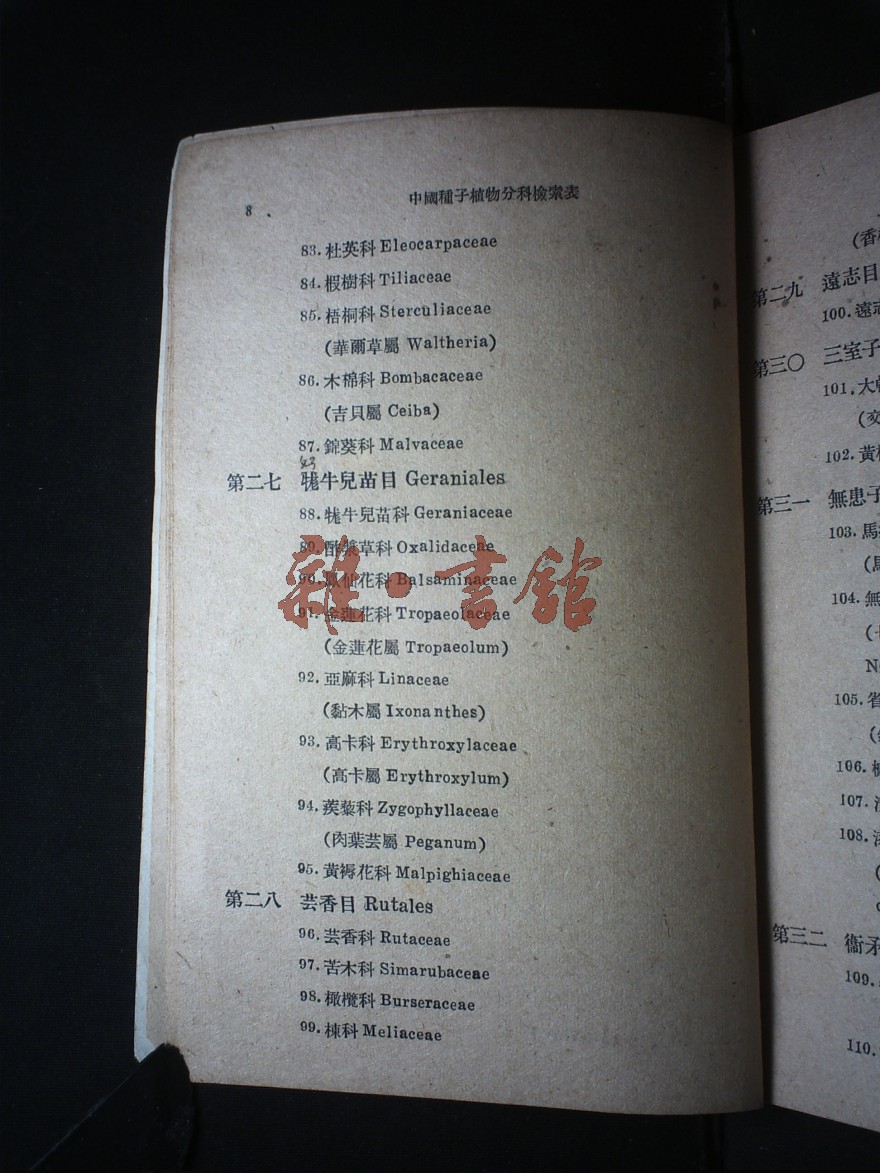 8
中國種子植物分科檢索表
83. 杜英科 Eleocarpaceae
84. 椴樹科 Tiliaceae
85. 梧桐科 Sterculiaceae
(華爾草屬 Waltheria)
86. 木棉科 Bombacaceae
(吉貝屬 Ceiba)
87. 錦葵科 Malvaceae
第二七 牻牛兒苗目 Geraniales
88. 牻牛兒苗科 Geraniaceae
89. 酢漿草科 Oxalidaceae
90. 鳳仙花科 Balsaminaceae
91. 金蓮花科 Tropaeolaceae
(金蓮花屬 Tropaeolum)
92. 亞麻科 Linaceae
(黏木屬 Ixonanthes)
93. 高卡科 Erythroxylaceae
(高卡屬 Erythroxylum)
94. 蒺藜科 Zygophyllaceae
(肉葉芸屬 Peganum)
95. 黃褥花科 Malpighiaceae
第二八 芸香目 Rutales
96. 芸香科 Rutaceae
97. 苦木科 Simarubaceae
98. 橄欖科 Burseraceae
99. 楝科 Meliaceae
雜·書館
(香
第二九 遠志目
100. 遠志
第三〇 三室子
101. 大
(交
102. 黃
第三一 無患子
103. 馬
(馬
104. 無
(
N
105. 省
(
106.
107.
108.
(
第三二 衞矛
109.
110.